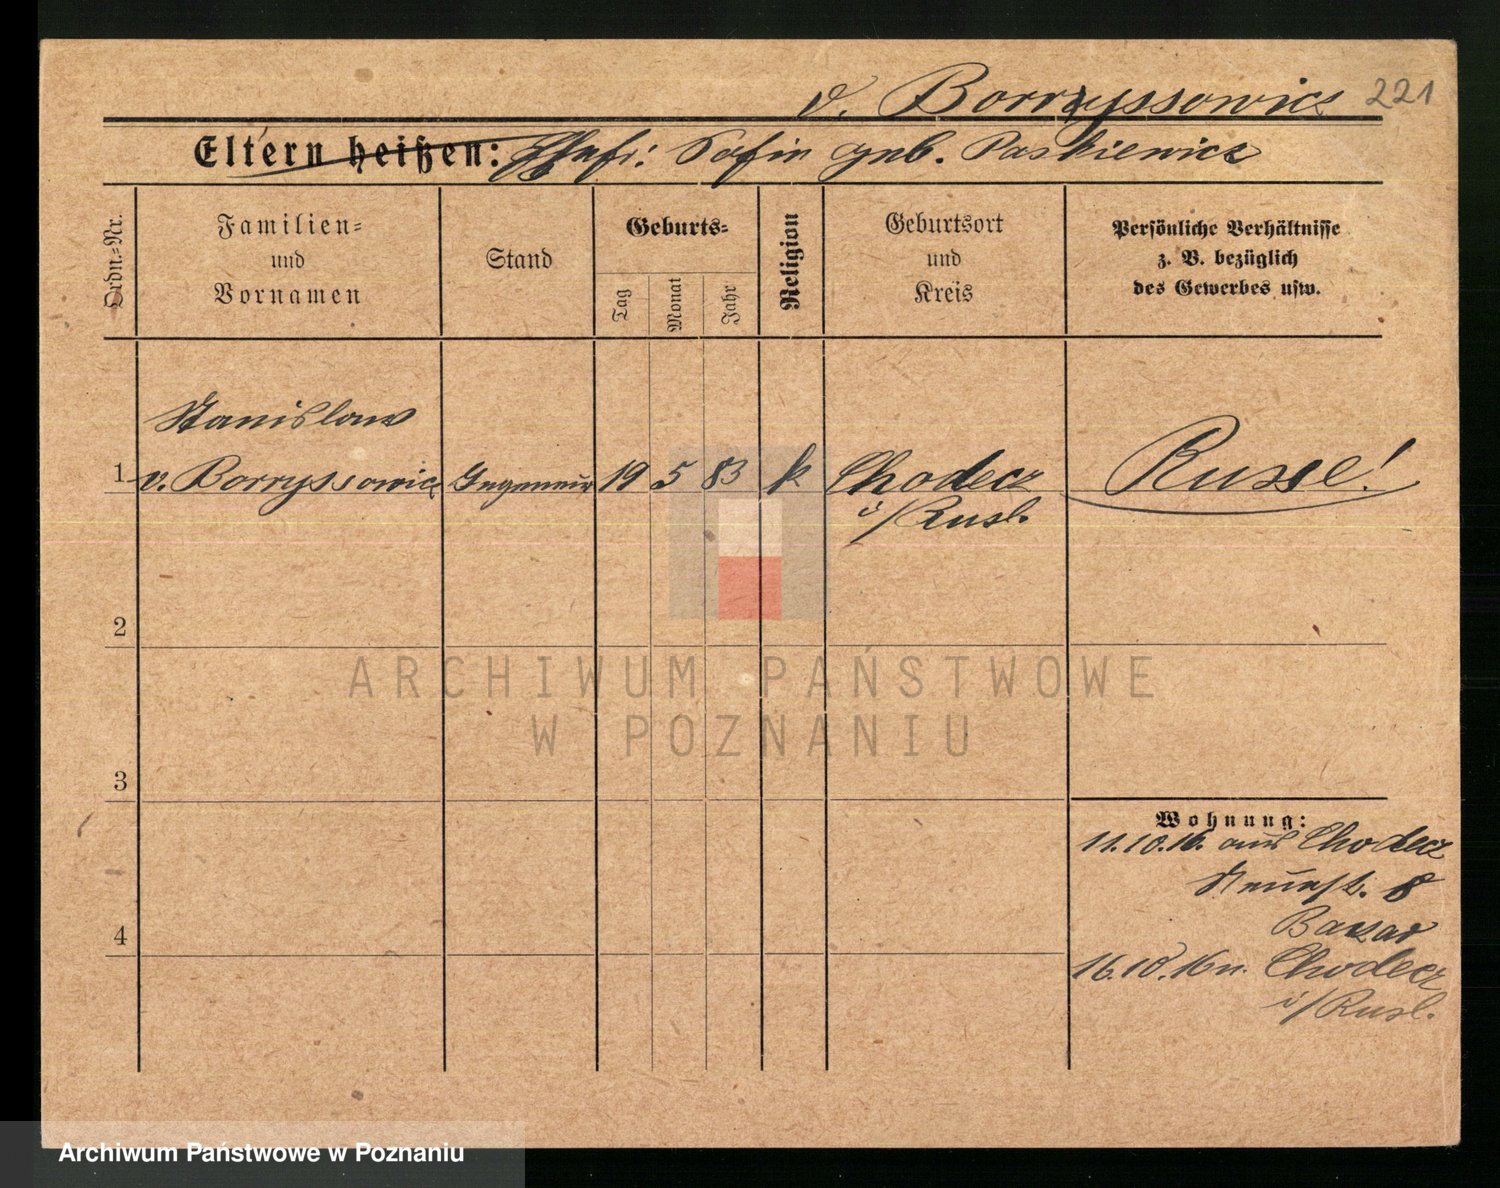 v. Borryssowicz 221
Eltern heißen: Ehefr: Sofie geb. Paskiewicz
Ordn.=Nr.
Familien=
und
Vornamen
Stand
Geburts=
Tag
Monat
Jahr
Religion
Geburtsort
und
Kreis
Persönliche Verhältnisse
z. B. bezüglich
des Gewerbes usw.
Stanislaw
1 v. Borryssowicz Ingenieur 19 5 83 k Chodecz Russe!
i/Rusl.
2
3
4
ARCHIWUM PAŃSTWOWE
W POZNANIU
Wohnung:
11.10.16. aus Chodecz
Neuest. 8
Bazar
16.10.16 n. Chodecz
i/Rusl.
Archiwum Państwowe w Poznaniu